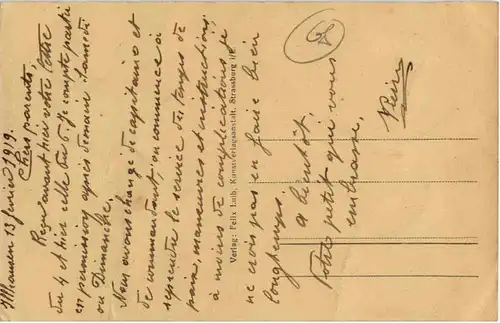 Illhausen 13 février 1919.
Chers parents,
Reçu avant hier votre lettre
du 4 et hier celle du 6. Je compte partir
en permission après demain Samedi
ou Dimanche.
Nous avons changé de capitaine et
de commandant, on commence à
reprendre le service du temps de
paix, manœuvres et instructions.
à moins de complications je
ne crois pas en faire bien
longtemps.
à bientôt.
Votre petit qui vous
embrasse.
Verlag: Felix Luib, Kunstverlagsanstalt, Strassburg i/E.